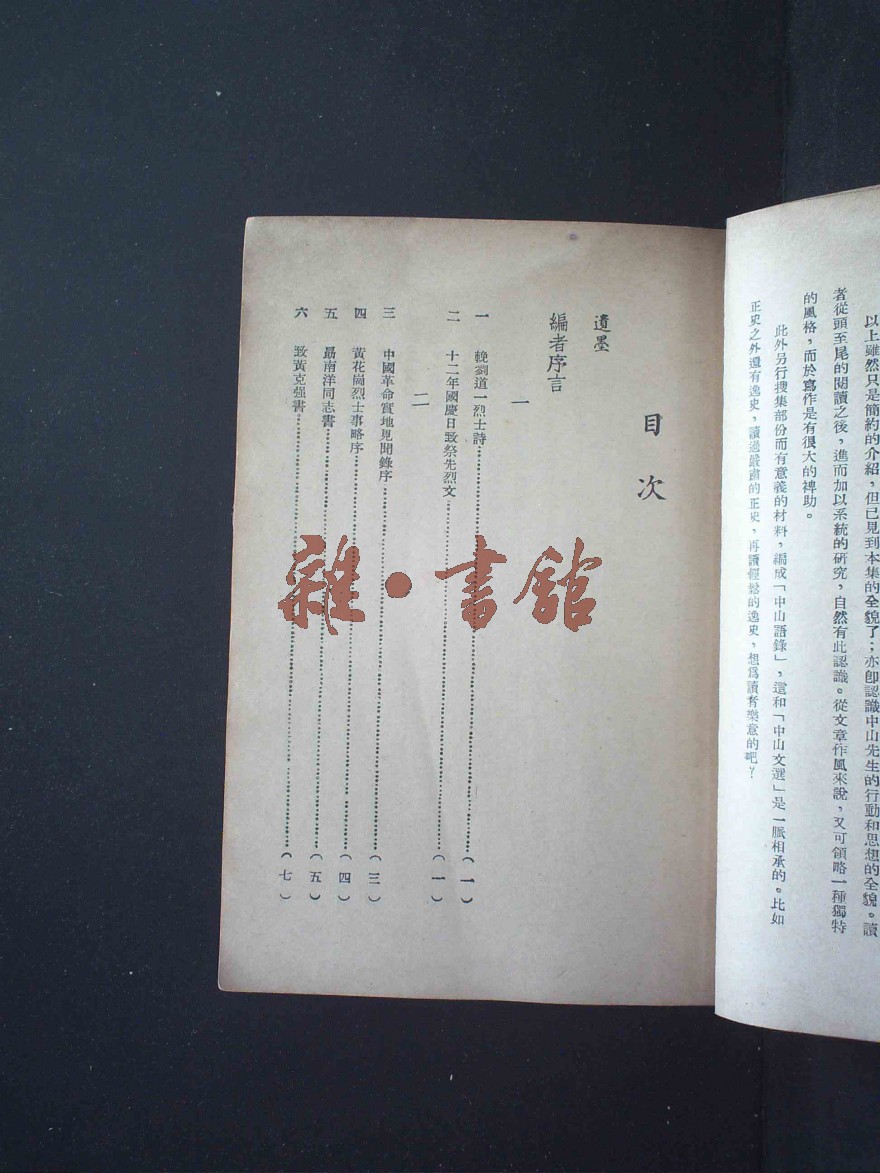 以上雖然只是簡約的介紹，但已見到本集的全貌了；亦卽認識中山先生的行動和思想的全貌。讀
者從頭至尾的閱讀之後，進而加以系統的研究，自然有此認識。從文章作風來說，又可領略一種獨特
的風格，而於寫作是有很大的裨助。
此外另行搜集部份而有意義的材料，編成「中山語錄」，這和「中山文選」是一脈相承的。比如
正史之外還有逸史，讀過嚴肅的正史，再讀輕鬆的逸史，想爲讀者樂意的吧？
目次
遺墨
編者序言
一
一 輓劉道一烈士詩………（一）
二 十二年國慶日致祭先烈文………（一）
二
三 中國革命實地見聞錄序………（三）
四 黃花崗烈士事略序………（四）
五 勗南洋同志書………（五）
六 致黃克强書………（七）
雜·書館